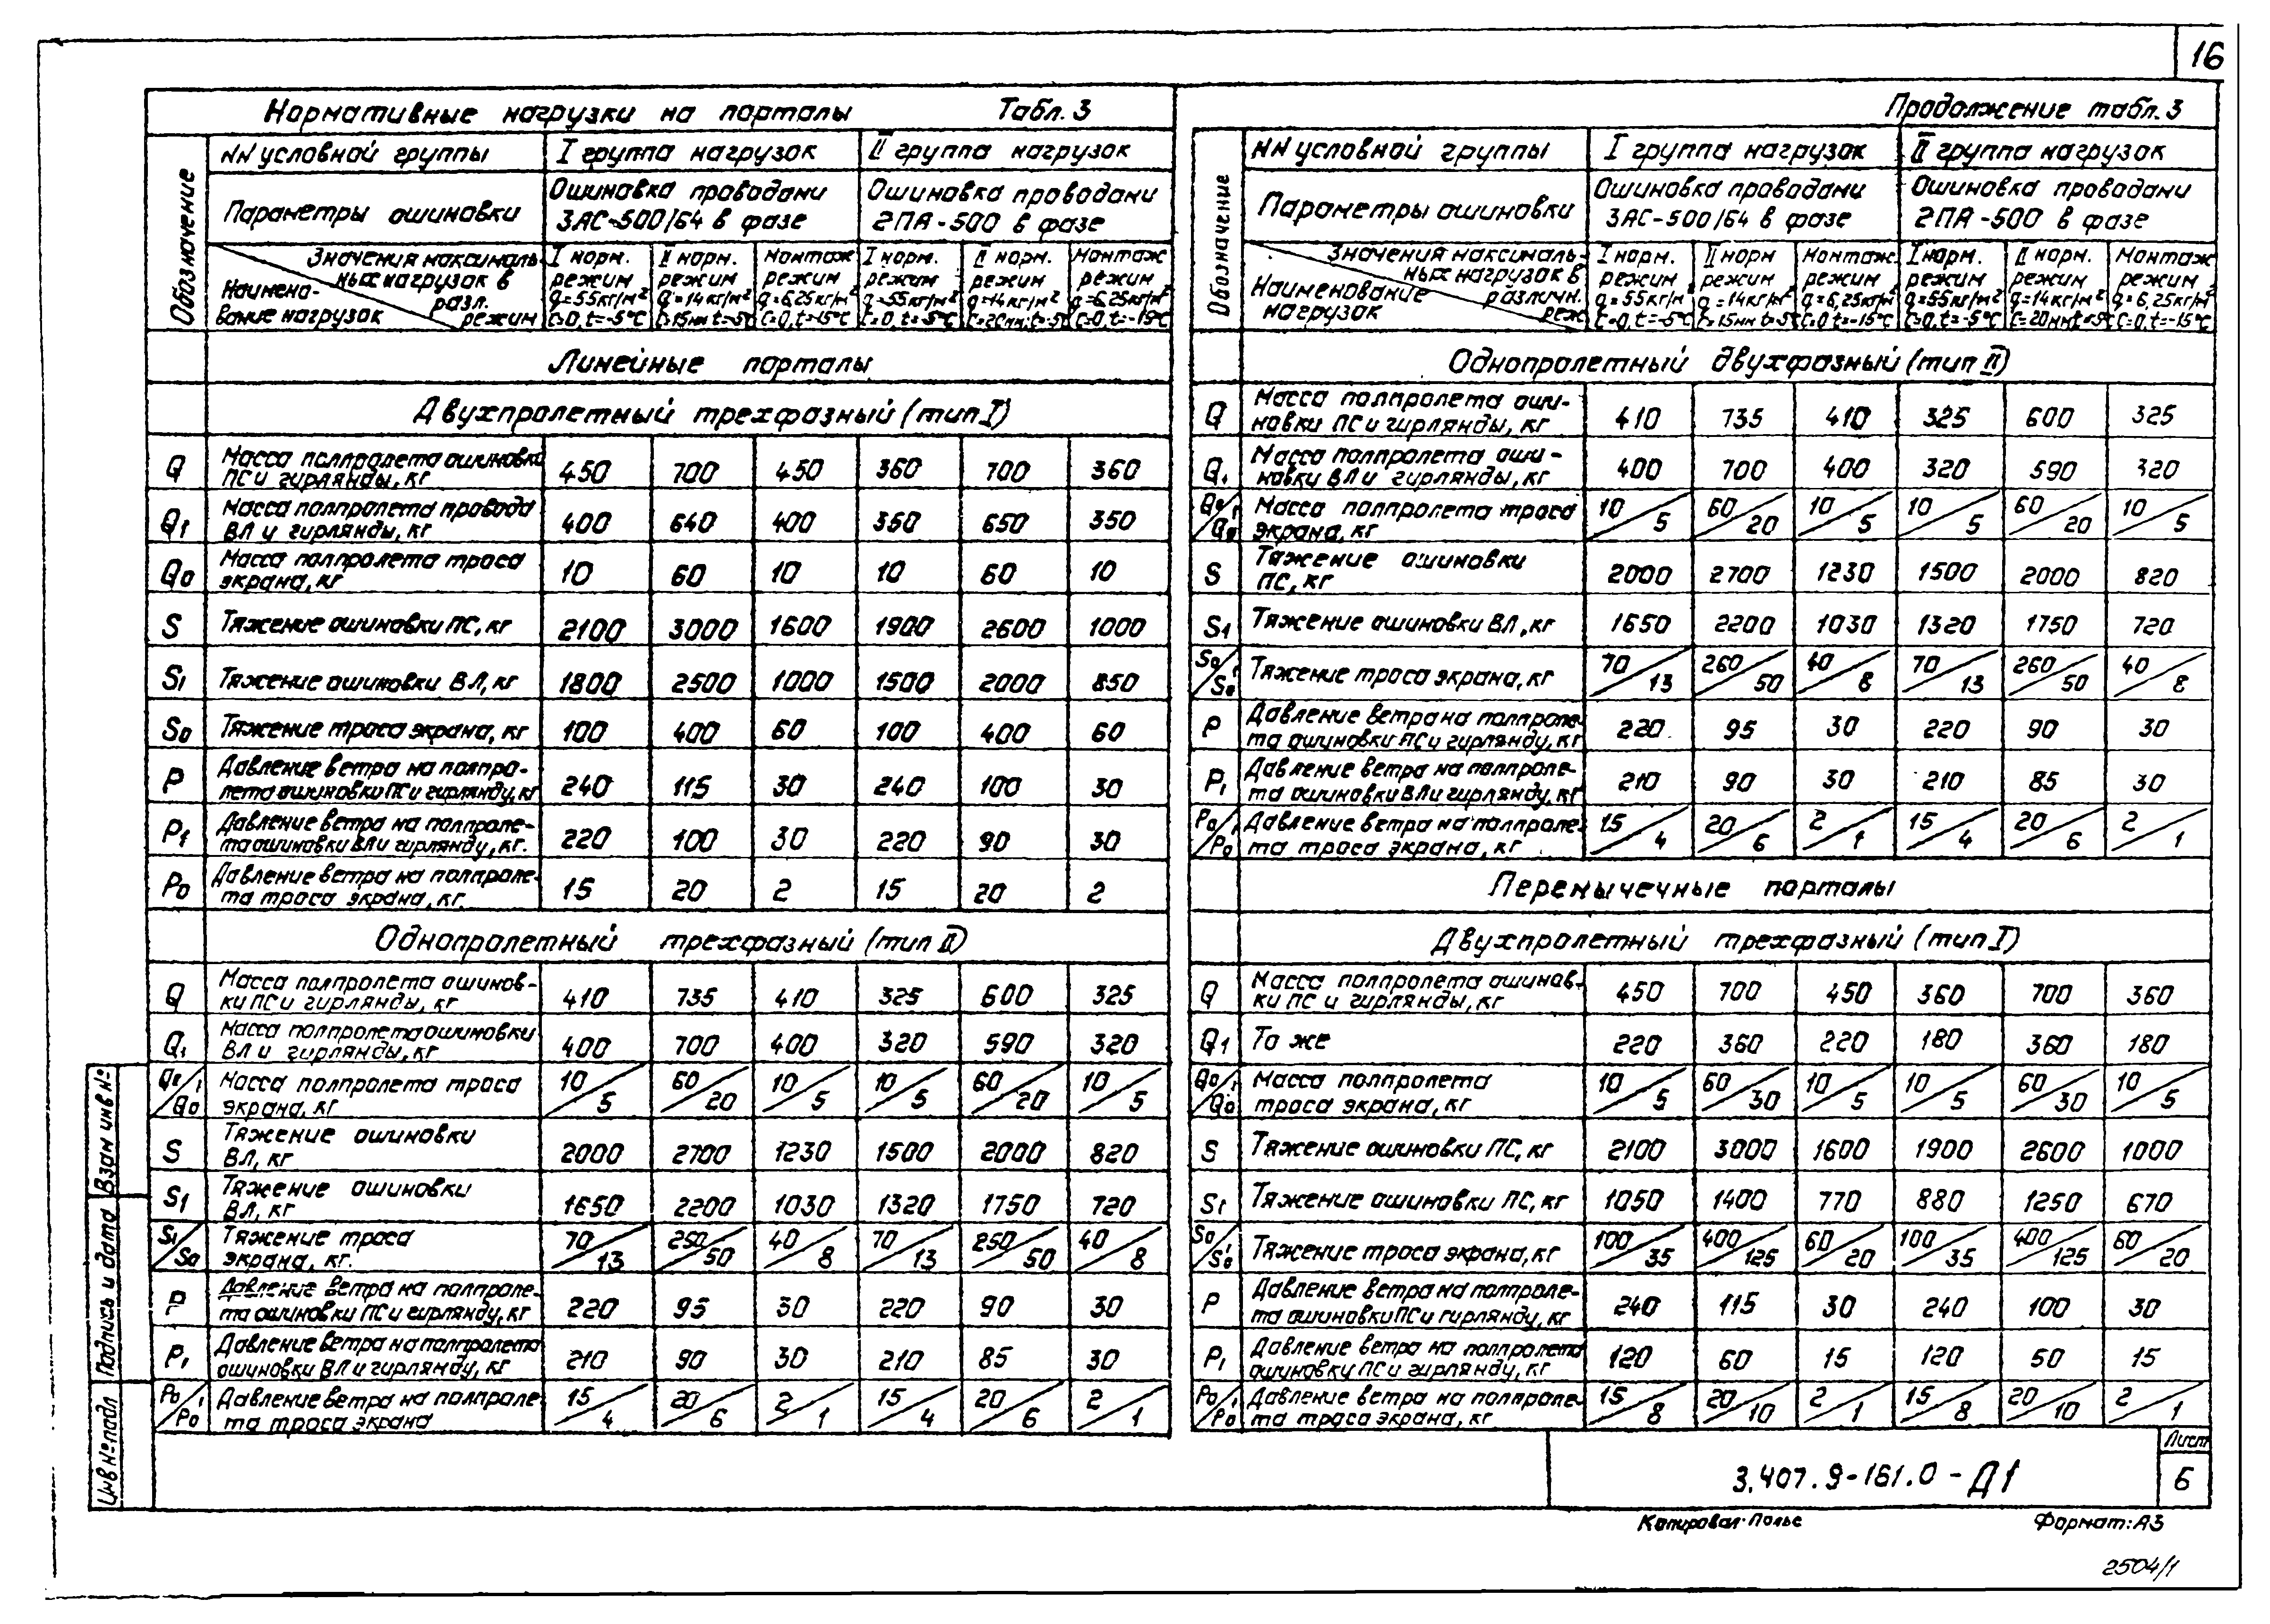 16
Нормативные нагрузки на порталы Табл. 3
Обозначение
NN условной группы I группа нагрузок II группа нагрузок
Параметры ошиновки Ошиновка проводами 3АС-500/64 в фазе Ошиновка проводами 2ПА-500 в фазе
Значения максимальных нагрузок в разл. режим
Наименование нагрузок
I норм. режим q=55кг/м² C=0, t=-5°C
II норм. режим q=14кг/м² C=15мм t=-5°C
Монтаж режим q=6,25кг/м² C=0, t=-15°C
I норм. режим q=55кг/м² C=0, t=-5°C
II норм. режим q=14кг/м² C=20мм, t=-5°
Монтаж режим q=6,25кг/м² C=0, t=-15°C
Линейные порталы
Двухпролетный трехфазный (тип I)
Q Масса полпролета ошиновки ПС и гирлянды, кг 450 700 450 360 700 360
Q1 Масса полпролета провода ВЛ и гирлянды, кг 400 640 400 350 650 350
Q0 Масса полпролета троса экрана, кг 10 60 10 10 60 10
S Тяжение ошиновки ПС, кг 2100 3000 1600 1900 2600 1000
S1 Тяжение ошиновки ВЛ, кг 1800 2500 1000 1500 2000 850
S0 Тяжение троса экрана, кг 100 400 60 100 400 60
P Давление ветра на полпролета ошиновки ПС и гирлянду, кг 240 115 30 240 100 30
P1 Давление ветра на полпролета ошиновки ВЛ и гирлянду, кг. 220 100 30 220 90 30
P0 Давление ветра на полпролета троса экрана, кг. 15 20 2 15 20 2
Однопролетный трехфазный (тип II)
Q Масса полпролета ошиновки ПС и гирлянды, кг 410 735 410 325 600 325
Q1 Масса полпролета ошиновки ВЛ и гирлянды, кг 400 700 400 320 590 320
Q0/Q0' Масса полпролета троса экрана, кг 10/5 60/20 10/5 10/5 60/20 10/5
S Тяжение ошиновки ВЛ, кг 2000 2700 1230 1500 2000 820
S1 Тяжение ошиновки ВЛ, кг 1650 2200 1030 1320 1750 720
S1/S0 Тяжение троса экрана, кг. 70/13 250/50 40/8 70/13 250/50 40/8
P Давление ветра на полпролета ошиновки ПС и гирлянду, кг 220 95 30 220 90 30
P1 Давление ветра на полпролета ошиновки ВЛ и гирлянду, кг 210 90 30 210 85 30
P0/P0' Давление ветра на полпролета троса экрана 15/4 20/6 2/1 15/4 20/6 2/1
Продолжение табл. 3
Обозначение
NN условной группы I группа нагрузок II группа нагрузок
Параметры ошиновки Ошиновка проводами 3АС-500/64 в фазе Ошиновка проводами 2ПА-500 в фазе
Значения максимальных нагрузок в различн. реж.
Наименование нагрузок
I норм. режим q=55кг/м² C=0, t=-5°C
II норм режим q=14кг/м² C=15мм t=-5°C
Монтаж. режим q=6,25кг/м² C=0, t=-15°C
I норм. режим q=55кг/м² C=0, t=-5°C
II норм. режим q=14кг/м² C=20мм t=-5°C
Монтаж режим q=6,25кг/м² C=0, t=-15°C
Однопролетный двухфазный (тип II)
Q Масса полпролета ошиновки ПС и гирлянды, кг 410 735 410 325 600 325
Q1 Масса полпролета ошиновки ВЛ и гирлянды, кг 400 700 400 320 590 320
Q0/Q0' Масса полпролета троса экрана, кг 10/5 60/20 10/5 10/5 60/20 10/5
S Тяжение ошиновки ПС, кг 2000 2700 1230 1500 2000 820
S1 Тяжение ошиновки ВЛ, кг 1650 2200 1030 1320 1750 720
S0/S0' Тяжение троса экрана, кг 70/13 260/50 40/8 70/13 260/50 40/8
P Давление ветра на полпролета ошиновки ПС и гирлянду, кг 220 95 30 220 90 30
P1 Давление ветра на полпролета ошиновки ВЛ и гирлянду, кг 210 90 30 210 85 30
P0/P0' Давление ветра на полпролета троса экрана, кг 15/4 20/6 2/1 15/4 20/6 2/1
Перемычечные порталы
Двухпролетный трехфазный (тип I)
Q Масса полпролета ошиновки ПС и гирлянды, кг 450 700 450 360 700 360
Q1 То же 220 360 220 180 360 180
Q0/Q0' Масса полпролета троса экрана, кг 10/5 60/30 10/5 10/5 60/30 10/5
S Тяжение ошиновки ПС, кг 2100 3000 1600 1900 2600 1000
S1 Тяжение ошиновки ПС, кг 1050 1400 770 880 1250 670
S0/S0' Тяжение троса экрана, кг 100/35 400/125 60/20 100/35 400/125 60/20
P Давление ветра на полпролета ошиновки ПС и гирлянду, кг 240 115 30 240 100 30
P1 Давление ветра на полпролета ошиновки ПС и гирлянду, кг 120 60 15 120 50 15
P0/P0' Давление ветра на полпролета троса экрана, кг 15/8 20/10 2/1 15/8 20/10 2/1
Взам инв №
Подпись и дата
Инв № подл
3.407.9-161.0-Д1
Лист
6
Копировал: Полье
Формат: А3
2504/1